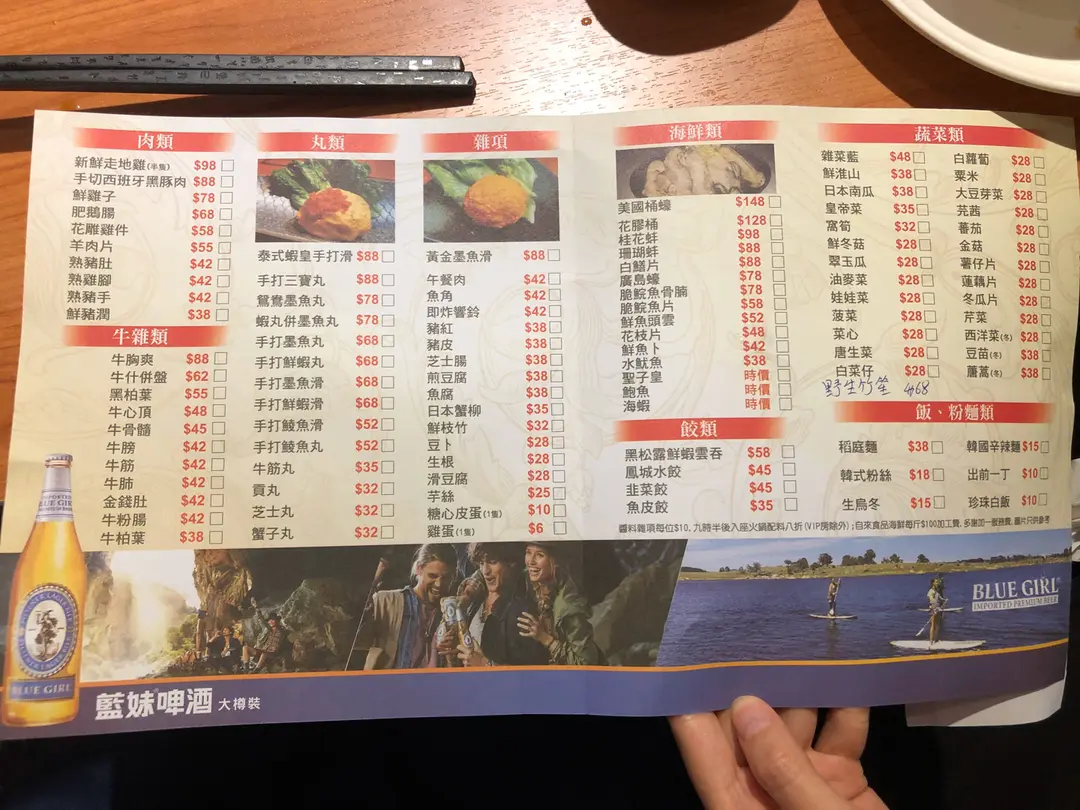 肉類
新鮮走地雞(半隻) $98
手切西班牙黑豚肉 $88
鮮雞子 $78
肥鵝腸 $68
花雕雞件 $58
羊肉片 $55
熟豬肚 $42
熟雞腳 $42
熟豬手 $42
鮮豬潤 $38
牛雜類
牛胸爽 $88
牛什併盤 $62
黑柏葉 $55
牛心頂 $48
牛骨髓 $45
牛膀 $42
牛筋 $42
牛肺 $42
金錢肚 $42
牛粉腸 $42
牛柏葉 $38
丸類
泰式蝦皇手打滑 $88
手打三寶丸 $88
鴛鴦墨魚丸 $78
蝦丸併墨魚丸 $78
手打墨魚丸 $68
手打鮮蝦丸 $68
手打墨魚滑 $68
手打鮮蝦滑 $68
手打鯪魚滑 $52
手打鯪魚丸 $52
牛筋丸 $35
貢丸 $32
芝士丸 $32
蟹子丸 $32
雜項
黃金墨魚滑 $88
午餐肉 $42
魚角 $42
即炸響鈴 $42
豬紅 $38
豬皮 $38
芝士腸 $38
煎豆腐 $38
魚腐 $38
日本蟹柳 $35
鮮枝竹 $32
豆卜 $28
生根 $28
滑豆腐 $28
芋絲 $25
糖心皮蛋(1隻) $10
雞蛋(1隻) $6
海鮮類
美國桶蠔 $148
花膠桶 $128
桂花蚌 $98
珊瑚蚌 $88
白鱔片 $88
廣島蠔 $78
脆鯇魚骨腩 $78
脆鯇魚片 $58
鮮魚頭雲 $52
花枝片 $48
鮮魚卜 $42
水魷魚 $38
聖子皇 時價
鮑魚 時價
海蝦 時價
餃類
黑松露鮮蝦雲吞 $58
鳳城水餃 $45
韭菜餃 $45
魚皮餃 $35
蔬菜類
雜菜藍 $48 白蘿蔔 $28
鮮淮山 $38 粟米 $28
日本南瓜 $38 大豆芽菜 $28
皇帝菜 $35 芫茜 $28
窩筍 $32 蕃茄 $28
鮮冬菇 $28 金菇 $28
翠玉瓜 $28 薯仔片 $28
油麥菜 $28 蓮藕片 $28
娃娃菜 $28 冬瓜片 $28
菠菜 $28 芹菜 $28
菜心 $28 西洋菜(冬) $28
唐生菜 $28 豆苗(冬) $38
白菜仔 $28 蕭蒿(冬) $38
野生竹笙 $68
飯、粉麵類
稻庭麵 $38 韓國辛辣麵 $15
韓式粉絲 $18 出前一丁 $10
生烏冬 $15 珍珠白飯 $10
醬料雜項每位$10, 九時半後入座火鍋配料八折 (VIP房除外) ; 自來食品海鮮每斤$100加工費, 多謝加一服務費, 圖片只供參考
BLUE GIRL
IMPORTED PREMIUM BEER
BLUE GIRL
藍妹啤酒 大樽裝